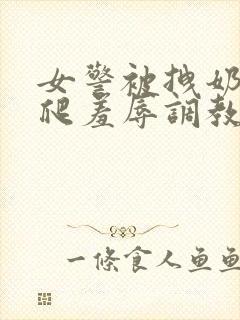 女警被拽奶
爬羞辱調教
一條食人鱼鱼